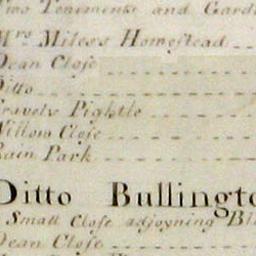 Two Tenements and Gard
Mrs Miles's Homestead
Dean Close
Ditto
Gravely Pightle
Willow Close
Rain Park
Ditto Bullingto
Small Close adjoyning Bl
Dean Close